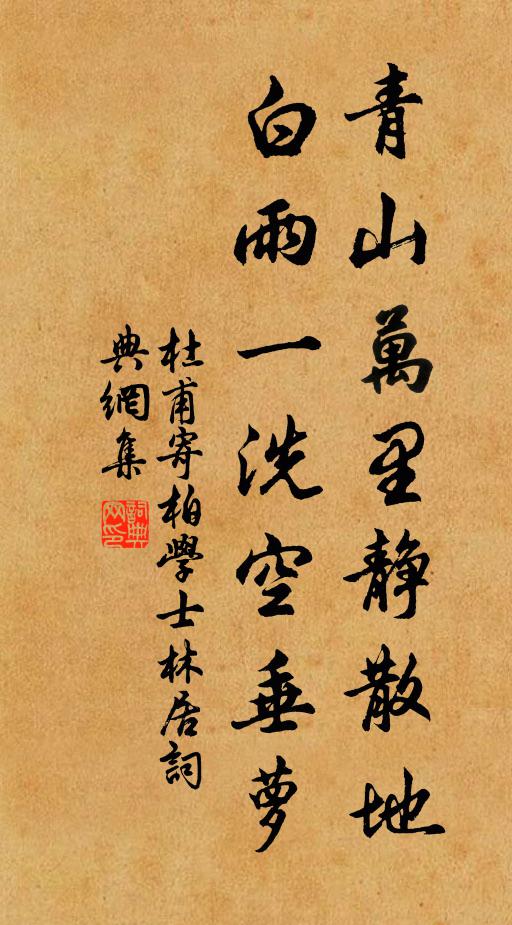 青山萬里静散地
白雨一洗空垂萝
杜甫寄柏學士林居詞
典網集
詞典
网印